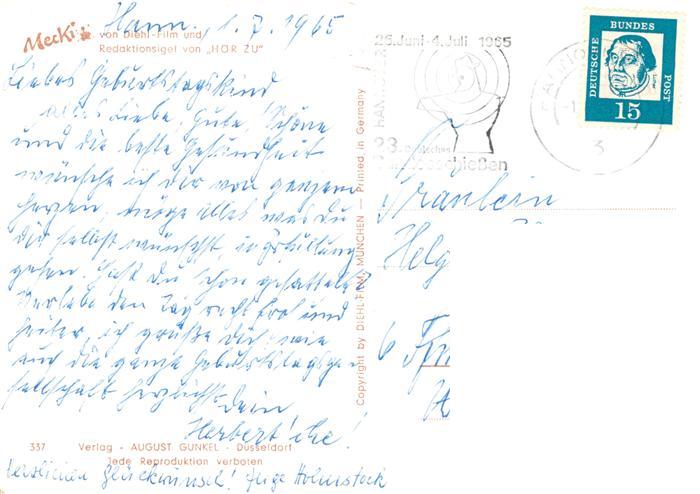 Hann. 1.7.1965
Mecki von Diehl-Film und
Redaktionsigel von „HÖR ZU"
Liebes Geburtstagskind
alles Liebe, Gute, Schöne
und die beste Gesundheit
wünsche ich dir von ganzem
Herzen, möge alles was Du
Dir selbst wünschst, in Erfüllung
gehen. Hast Du schon gefattelt?
Verlebe den Tag recht froh und
heiter, ich grüße Dich, wie
auch die ganze Geburtstagsge-
sellschaft herzlichst
Dein
Herbert'che!
337 Verlag - AUGUST GUNKEL - Düsseldorf
Jede Reproduktion verboten
herzlichen Glückwunsch! Inge Holmstock
Copyright by DIEHL-FILM, MÜNCHEN — Printed in Germany
25. Juni - 4. Juli 1965
HAN
23. Deutsches
schießen
3
DEUTSCHE BUNDES POST
15
Fräulein
Helg
6 Ffm